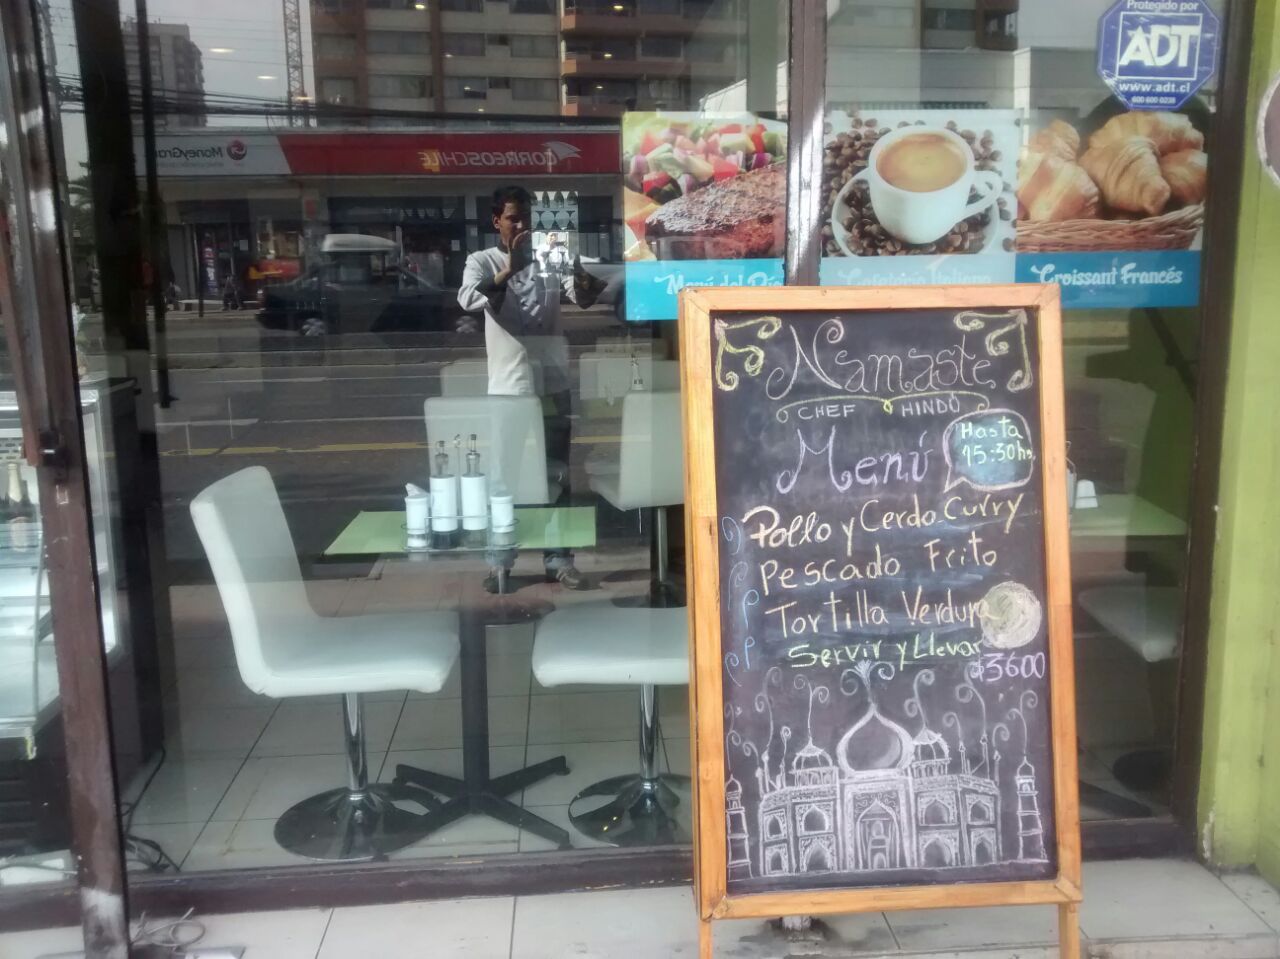 Protegido por
ADT
www.adt.cl
600 600 0238
MoneyGram
CORREOSCHILE
Menú del Día
Cafetería Italiana
Croissant Francés
Namaste
CHEF HINDÚ
Menú
Hasta
15:30hs
Pollo y Cerdo Curry
Pescado Frito
Tortilla Verdura
Servir y Llevar
$3600